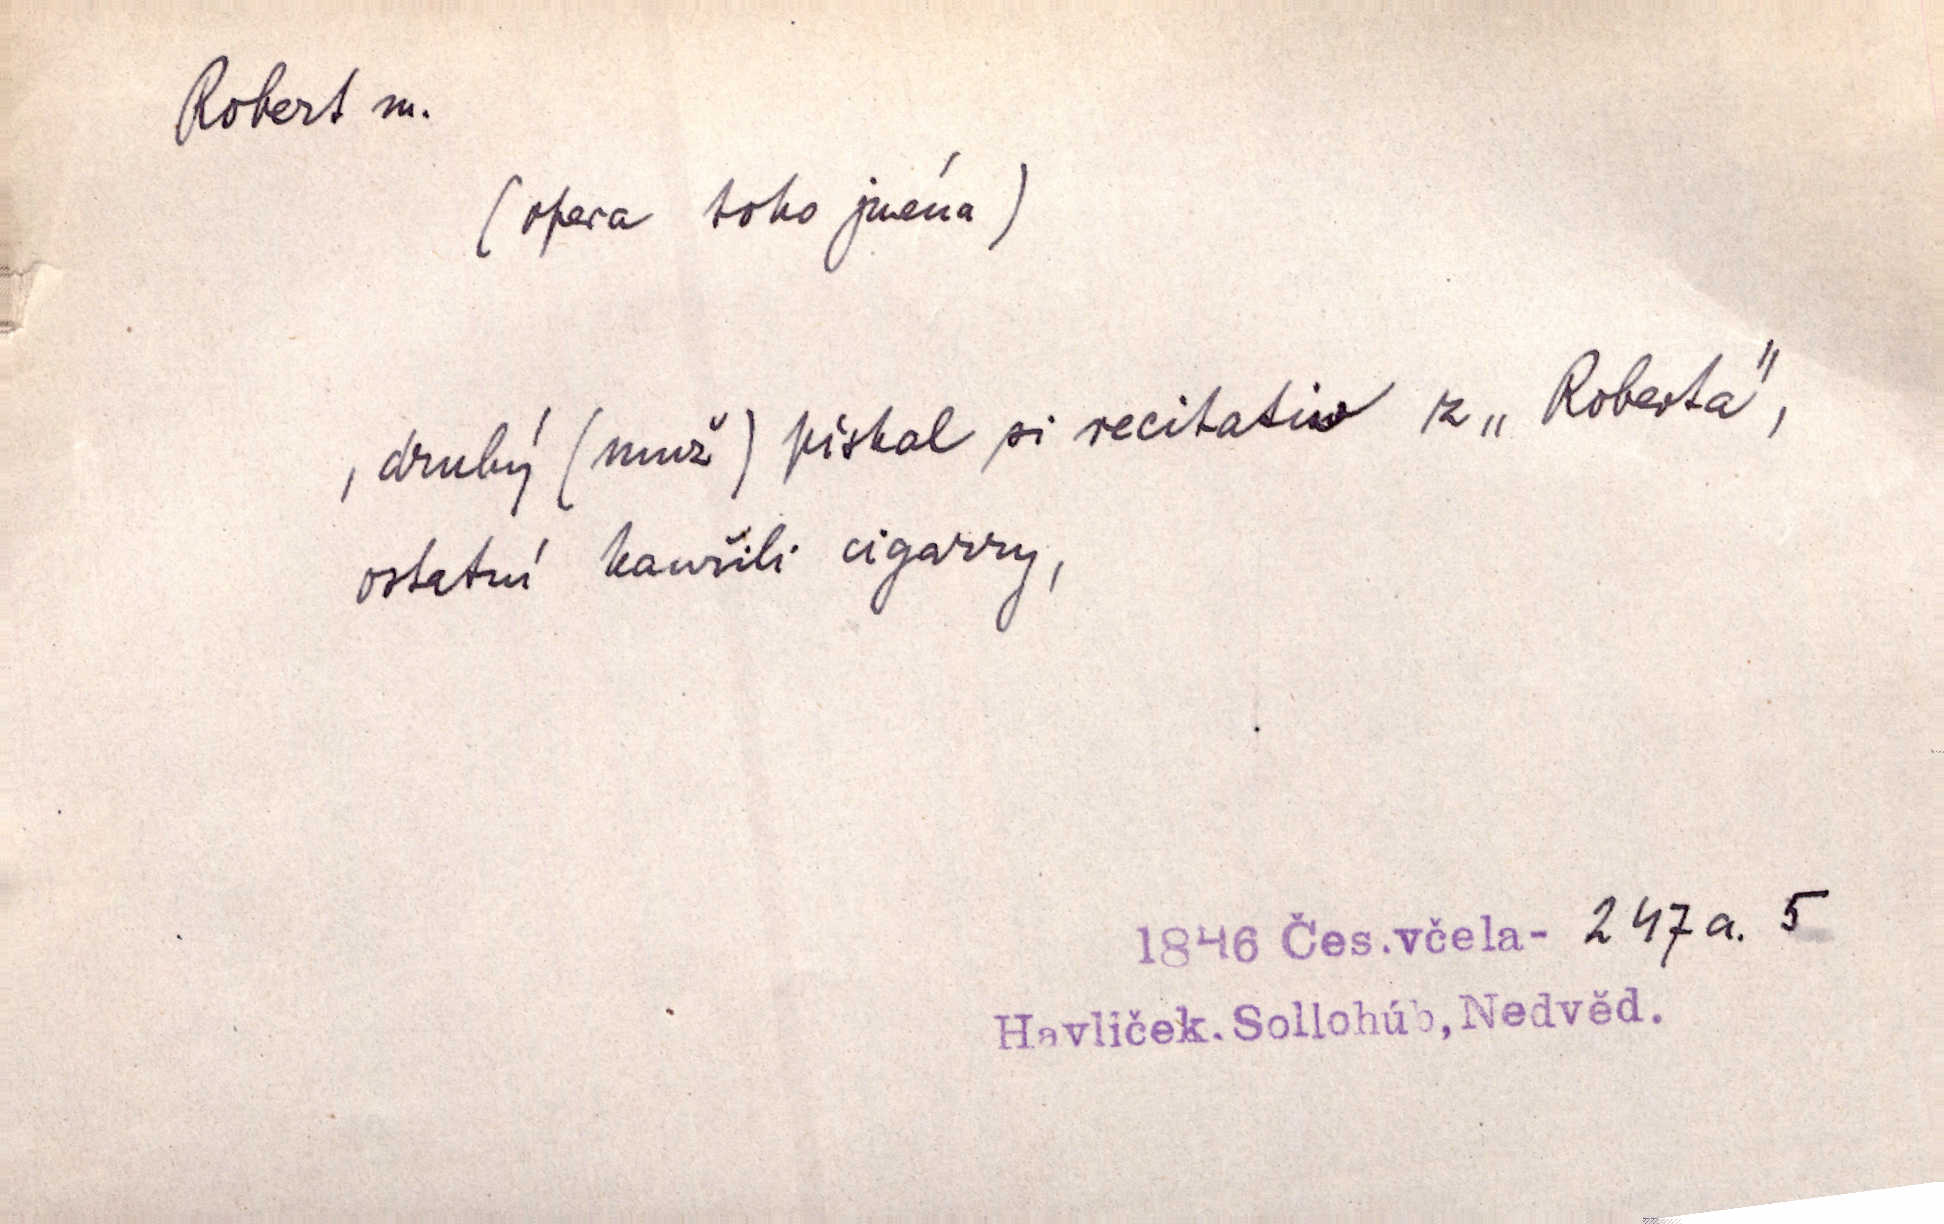 Robert m.
(opera toho jména)
, druhý (muž) pískal si recitativ z „Roberta",
ostatní kauřili cigarry,
1846 Čes.včela- 247a. 5
Havlíček. Sollohúb, Nedvěd.